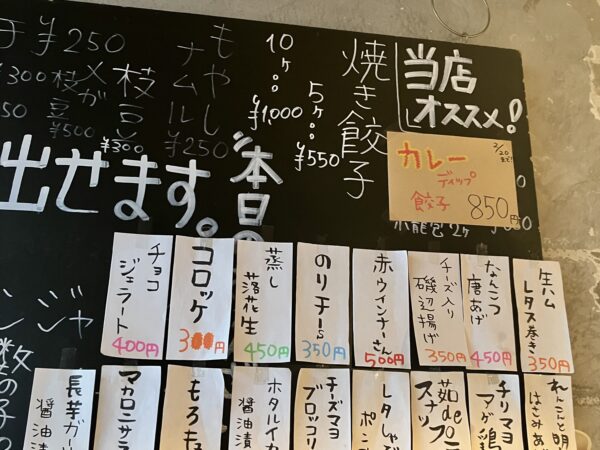 当店
オススメ!
カレー
ディップ
餃子
850円
2/20まで!
小籠包2ヶ
焼き餃子
5ヶ:¥550
10ヶ:¥1,000
もやし
ナムル
¥250
枝豆
¥300
メガ
枝豆
¥500
¥300
¥250
本日の
出せます。
生ハム
レタス巻き
350円
なんこつ
唐あげ
450円
チーズ入り
磯辺揚げ
350円
赤ウインナーさん
500円
のりチーs
350円
蒸し
落花生
450円
コロッケ
300円
チョコ
ジェラート
400円
れんこんと明
はさみあ
チリマヨ
マグ鶏
茹deプ
スナッ
レタしゃぶ
ポン
チーズマヨ
ブロッコリ
ホタルイカ
醤油漬
もろキュ
マカロニサラ
長芋ガー
醤油漬
ンジャ
数の子の